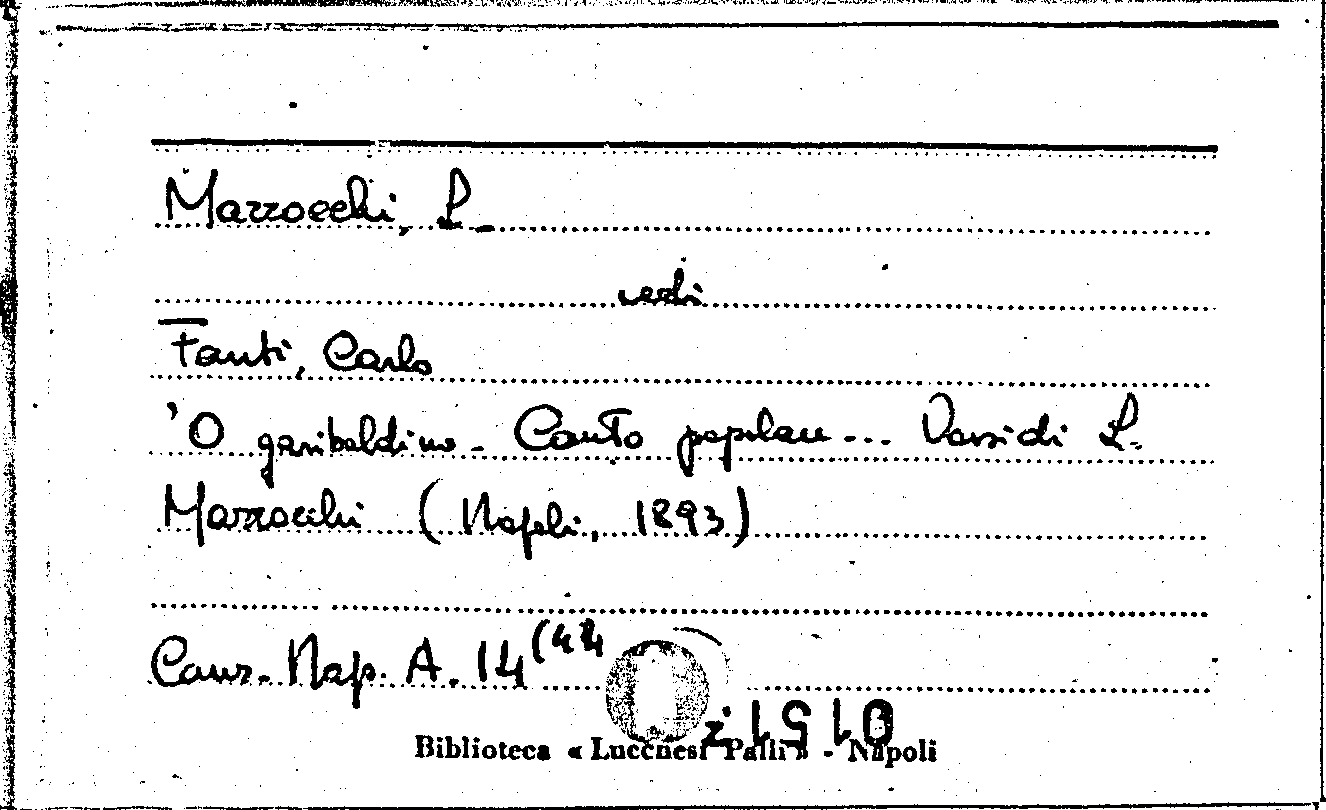 Mazzocchi, L.
vedi
Fanti, Carlo
'O garibaldino. Canto popolare... Versi di L.
Mazzocchi (Napoli, 1893)
Canz. Nap. A. 14
Biblioteca « Lucchesi Palli » - Napoli